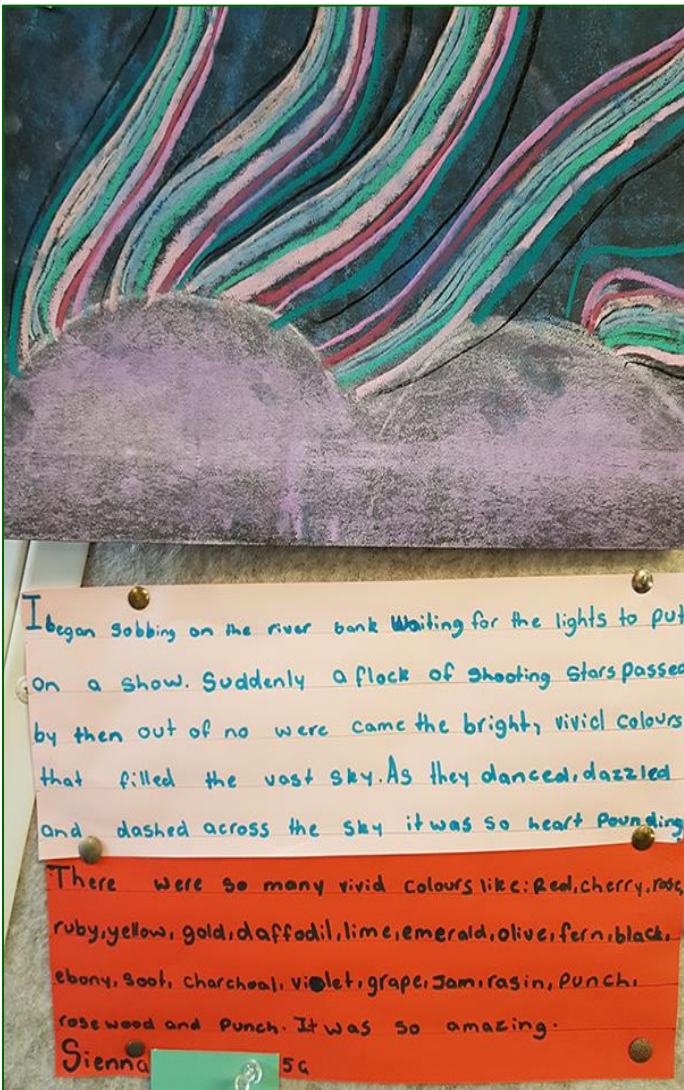 I began sobbing on the river bank Waiting for the lights to put
on a show. Suddenly a flock of shooting stars passed
by then out of no were came the bright, vivid colours
that filled the vast sky. As they danced, dazzled
and dashed across the sky it was so heart pounding
There were so many vivid colours like: Red, cherry, rose,
ruby, yellow, gold, daffodil, lime, emerald, olive, fern, black,
ebony, soot, charchoal, violet, grape, Jam, rasin, punch,
rosewood and punch. It was so amazing.
Sienna 5G